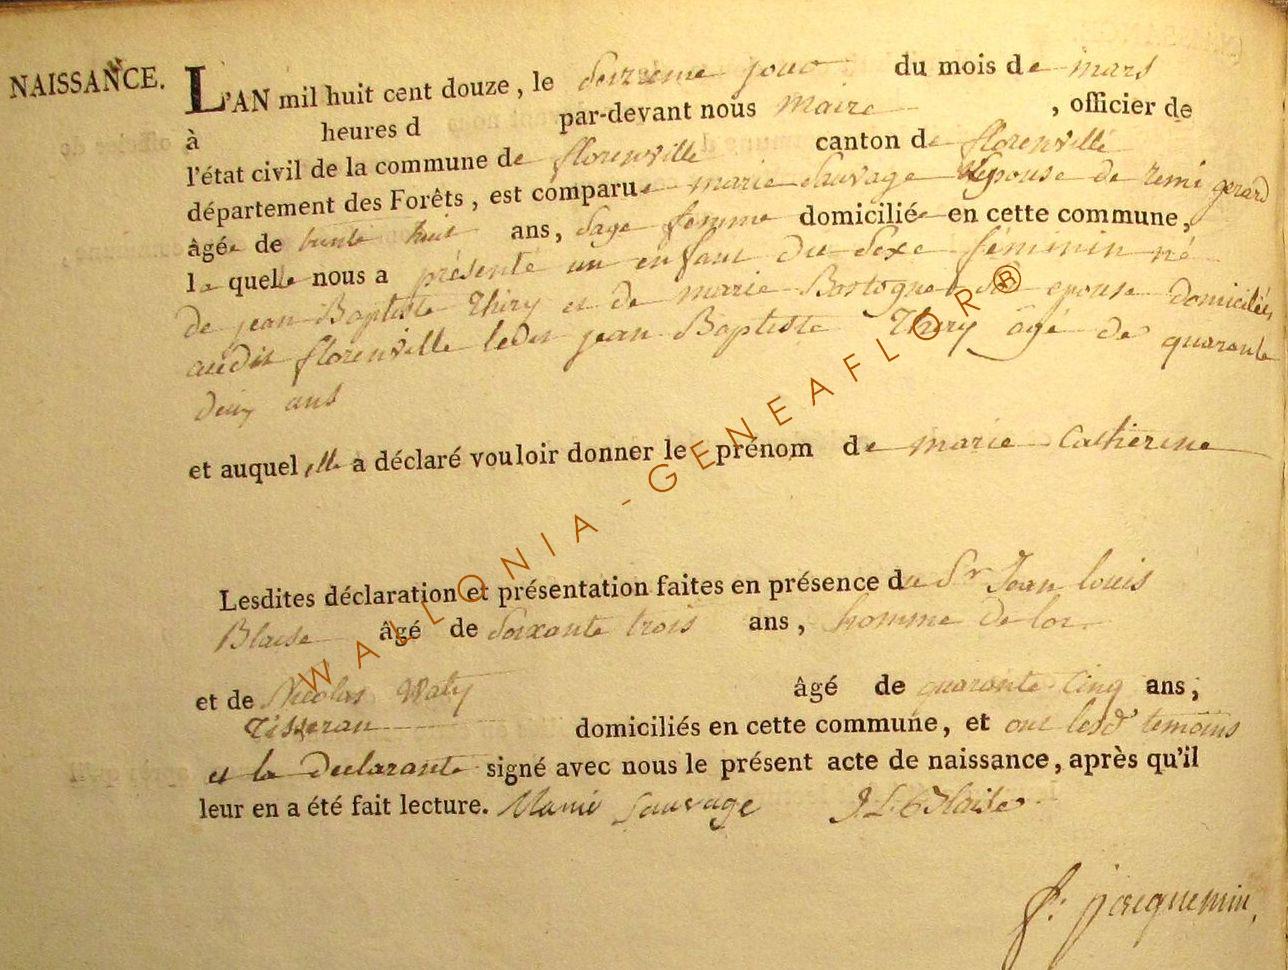 NAISSANCE.
L'AN mil huit cent douze, le Seizieme jour du mois de mars
à heures d par-devant nous Maire, officier de
l'état civil de la commune de florenville canton de florenville
département des Forêts, est comparue marie Sauvage Epouse de remi gerard
âgée de trente huit ans, Sage femme domiciliée en cette commune,
la quelle nous a présenté un enfant du Sexe féminin né
de jean Baptiste Thiry et de marie Bastogne Son epouse domiciliés
audit florenville ledit jean Baptiste Thiry âgé de quarante
deux ans
et auquel elle a déclaré vouloir donner le prénom de marie Catherine
Lesdites déclaration et présentation faites en présence du Sr Jean louis
Blaise âgé de Soixante trois ans, homme de loi
et de Nicolas Waty âgé de quarante cinq ans,
Tisseran domiciliés en cette commune, et ont lesd temoins
et la declarante signé avec nous le présent acte de naissance, après qu'il
leur en a été fait lecture. Marie Sauvage J. L. Blaise
f: jacquemin
WALLONIA - GENEAFLOR®